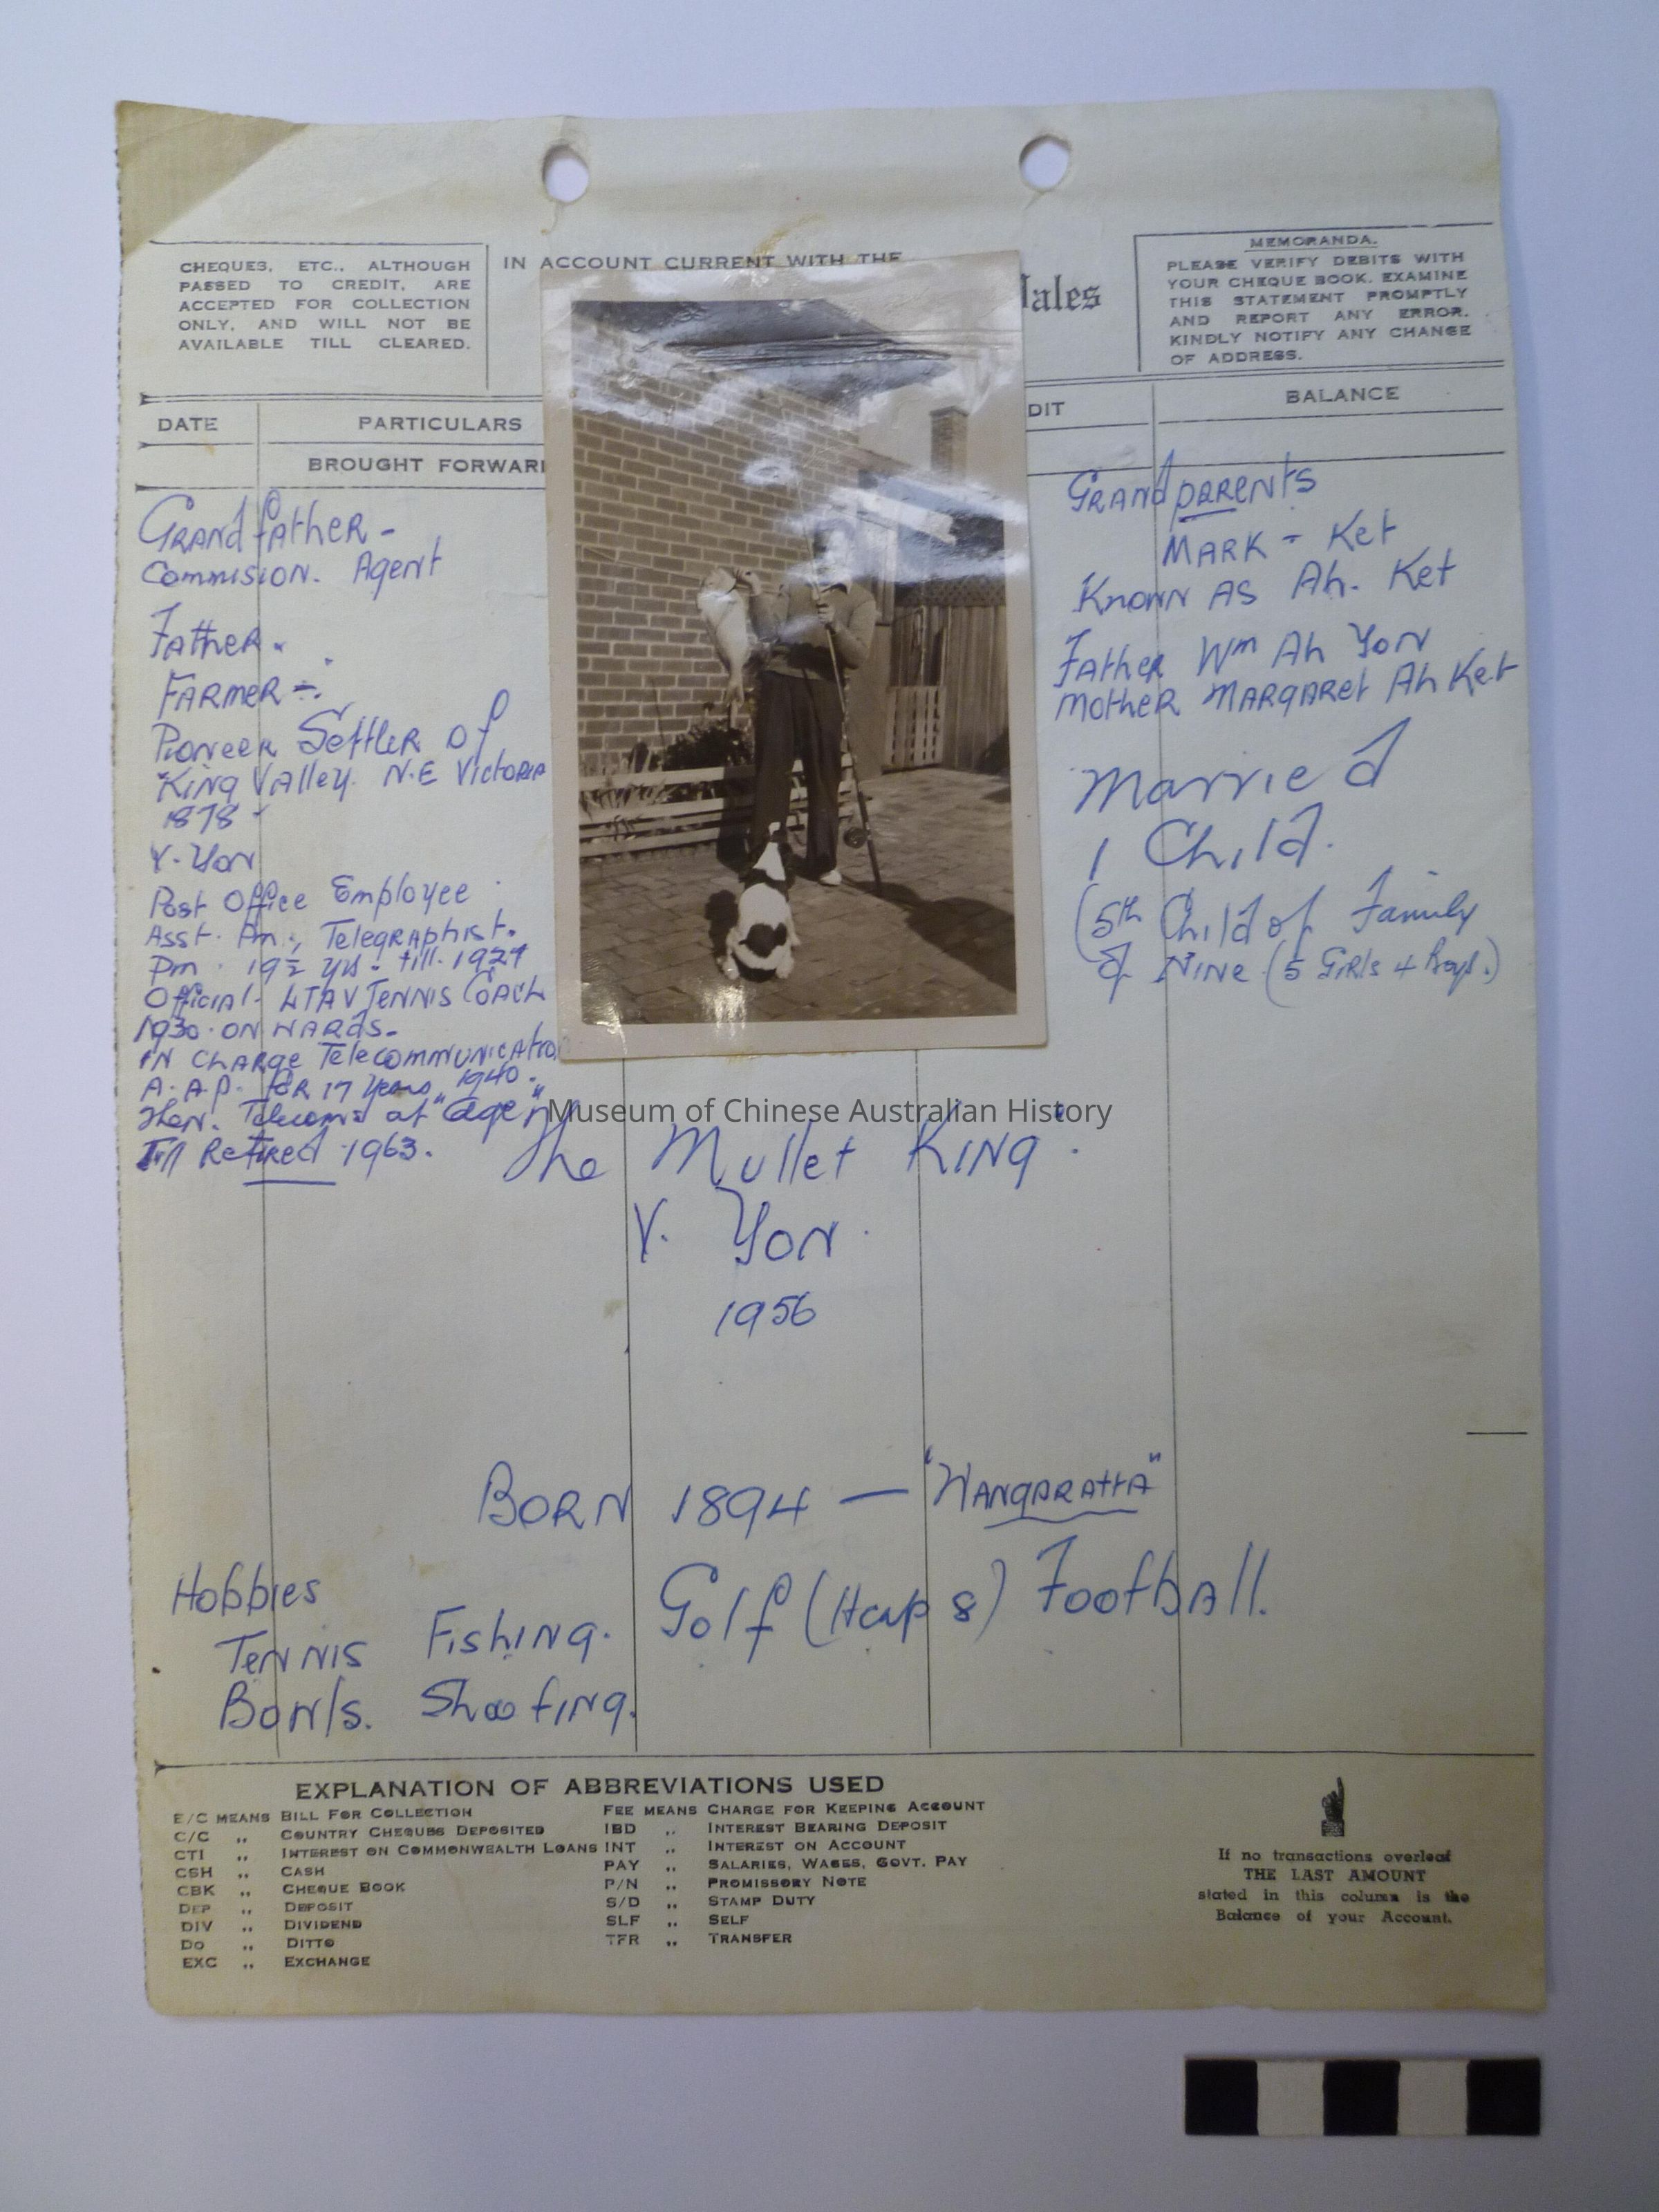 CHEQUES, ETC., ALTHOUGH
PASSED TO CREDIT, ARE
ACCEPTED FOR COLLECTION
ONLY, AND WILL NOT BE
AVAILABLE TILL CLEARED.
IN ACCOUNT CURRENT WITH THE
Wales
MEMORANDA.
PLEASE VERIFY DEBITS WITH
YOUR CHEQUE BOOK. EXAMINE
THIS STATEMENT PROMPTLY
AND REPORT ANY ERROR.
KINDLY NOTIFY ANY CHANGE
OF ADDRESS.
DATE
PARTICULARS
DIT
BALANCE
BROUGHT FORWAR
Grandfather -
Commision. Agent
Father.
Farmer -.
Pioneer Settler of
King Valley. N.E Victoria
1878 -
V. Yon
Post Office Employee
Asst. Pm., Telegraphist.
Pm. 19½ yrs. till. 1927
Official LTAV Tennis Coach
1930. onwards-
in charge Telecommunicatio
A.A.P. for 17 Years, 1940.
Then. Telecoms at "Age"
Till Retired 1963.
Grandparents
Mark - Ket
Known As Ah. Ket
Father Wm Ah Yon
Mother Margaret Ah Ket
Married
1 Child.
(5th Child of Family
of Nine (5 Girls 4 Boys.)
Museum of Chinese Australian History
The Mullet King.
V. Yon.
1956
Born 1894 — "Wangaratta"
Hobbies
Tennis Fishing. Golf (Hcap 8) Football.
Bowls. Shooting.
EXPLANATION OF ABBREVIATIONS USED
B/C MEANS BILL FOR COLLECTION
C/C ,, COUNTRY CHEQUES DEPOSITED
CTI ,, INTEREST ON COMMONWEALTH LOANS
CSH ,, CASH
CBK ,, CHEQUE BOOK
DEP ,, DEPOSIT
DIV ,, DIVIDEND
DO ,, DITTO
EXC ,, EXCHANGE
FEE MEANS CHARGE FOR KEEPING ACCOUNT
IBD ,, INTEREST BEARING DEPOSIT
INT ,, INTEREST ON ACCOUNT
PAY ,, SALARIES, WAGES, GOVT. PAY
P/N ,, PROMISSORY NOTE
S/D ,, STAMP DUTY
SLF ,, SELF
TFR ,, TRANSFER
If no transactions overleaf
THE LAST AMOUNT
stated in this column is the
Balance of your Account.